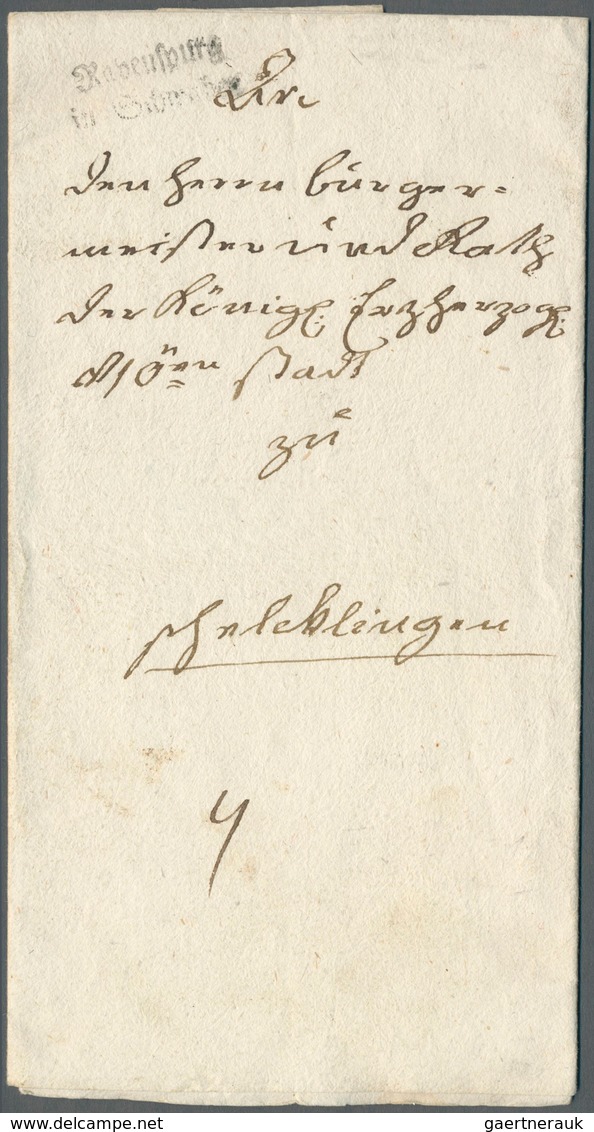 Ravenspurg
in Schwaben
den Herrn bürger-
meister und Rath
der Königl: Erzherzogl:
Stadt
zu
schelcklingen
4
delcampe.net
gaertnerauk